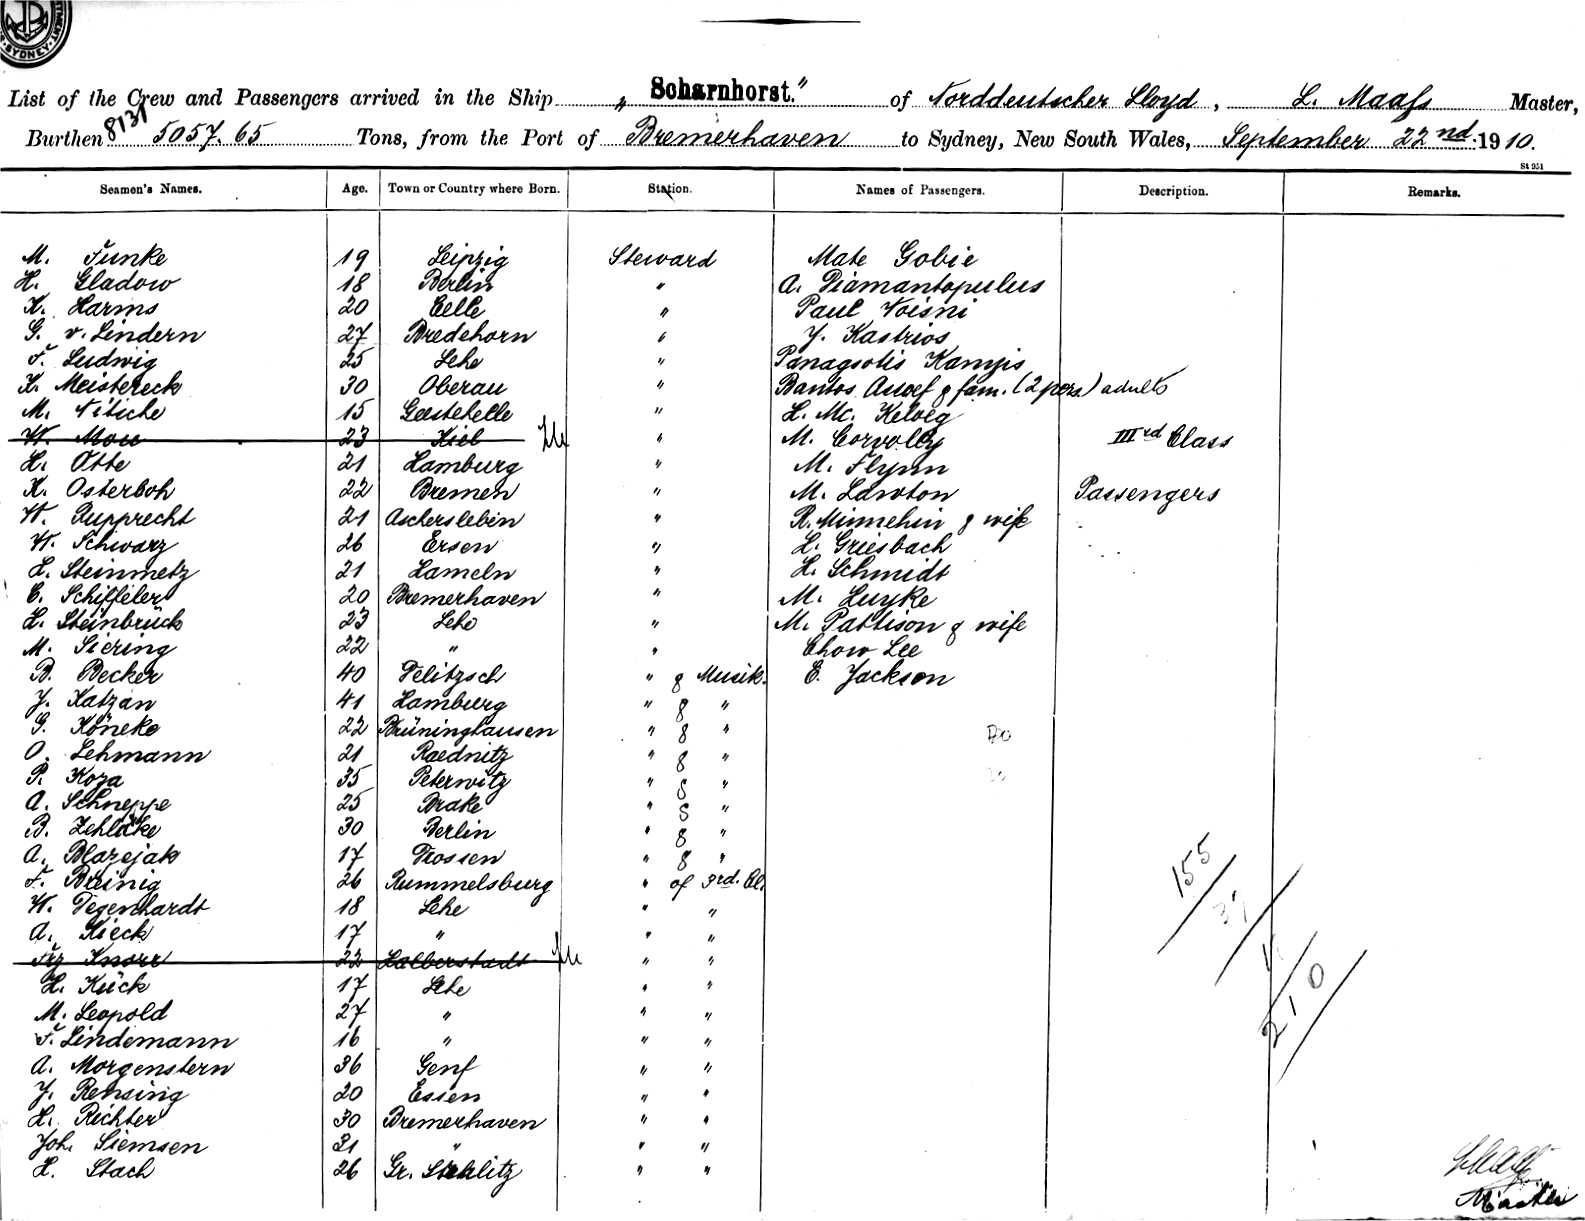 SYDNEY
List of the Crew and Passengers arrived in the Ship „ Scharnhorst." of Norddeutscher Lloyd, L. Maass Master,
Burthen 8131 5057.65 Tons, from the Port of Bremerhaven to Sydney, New South Wales, September 22nd 1910.
St 951
Seamen's Names. Age. Town or Country where Born. Station. Names of Passengers. Description. Remarks.
M. Funke 19 Leipzig Steward Mate Gobie
H. Gladow 18 Berlin " A. Diamantopulus
K. Harms 20 Celle " Paul Voisni
G. v. Lindern 27 Bredehorn " J. Kastrios
F. Ludwig 25 Lehe " Panagsotis Kamjis
K. Meistereck 30 Oberau " Bantos & fam. (2 pers.) adults
M. Nitsche 15 Geestehelle " H. Mc. Kelveg
W. Mou 23 Kiel " M. Corvolly IIIrd Class
H. Otte 21 Hamburg " M. Flynn
K. Osterboh 22 Bremen " M. Lawton Passengers
W. Rupprecht 21 Aschersleben " R. Minnehin & wife
W. Schwarz 26 Ersen " L. Griesbach
H. Steinmetz 21 Hameln " H. Schmidt
C. Schiffeler 20 Bremerhaven " M. Huyke
H. Steinbrück 23 Lehe " M. Pattison & wife
M. Siering 22 " " Chow Lee
B. Becker 40 Delitzsch " & Musik. E. Jackson
J. Katzan 41 Hamburg " & "
G. Köneke 22 Brüninghausen " & "
O. Lehmann 21 Raednitz " & "
P. Koza 35 Peterwitz " & "
A. Schneppe 25 Brake " & "
B. Zehlicke 30 Berlin " & "
A. Blazejak 17 Trossen " & "
F. Breinig 26 Rummelsburg " of 3rd. Cl. 155
W. Degenhardt 18 Lehe " " 37
A. Kieck 17 " " "
Frz Knorr 22 Halberstadt " "
H. Kück 17 Lehe " " 210
M. Leopold 27 " " "
F. Lindemann 16 " " "
A. Morgenstern 36 Genf " "
J. Rensing 20 Essen " "
H. Richter 30 Bremerhaven " "
Joh. Siemsen 31 " " "
H. Stach 26 Gr. Strehlitz " "
Maass
Master